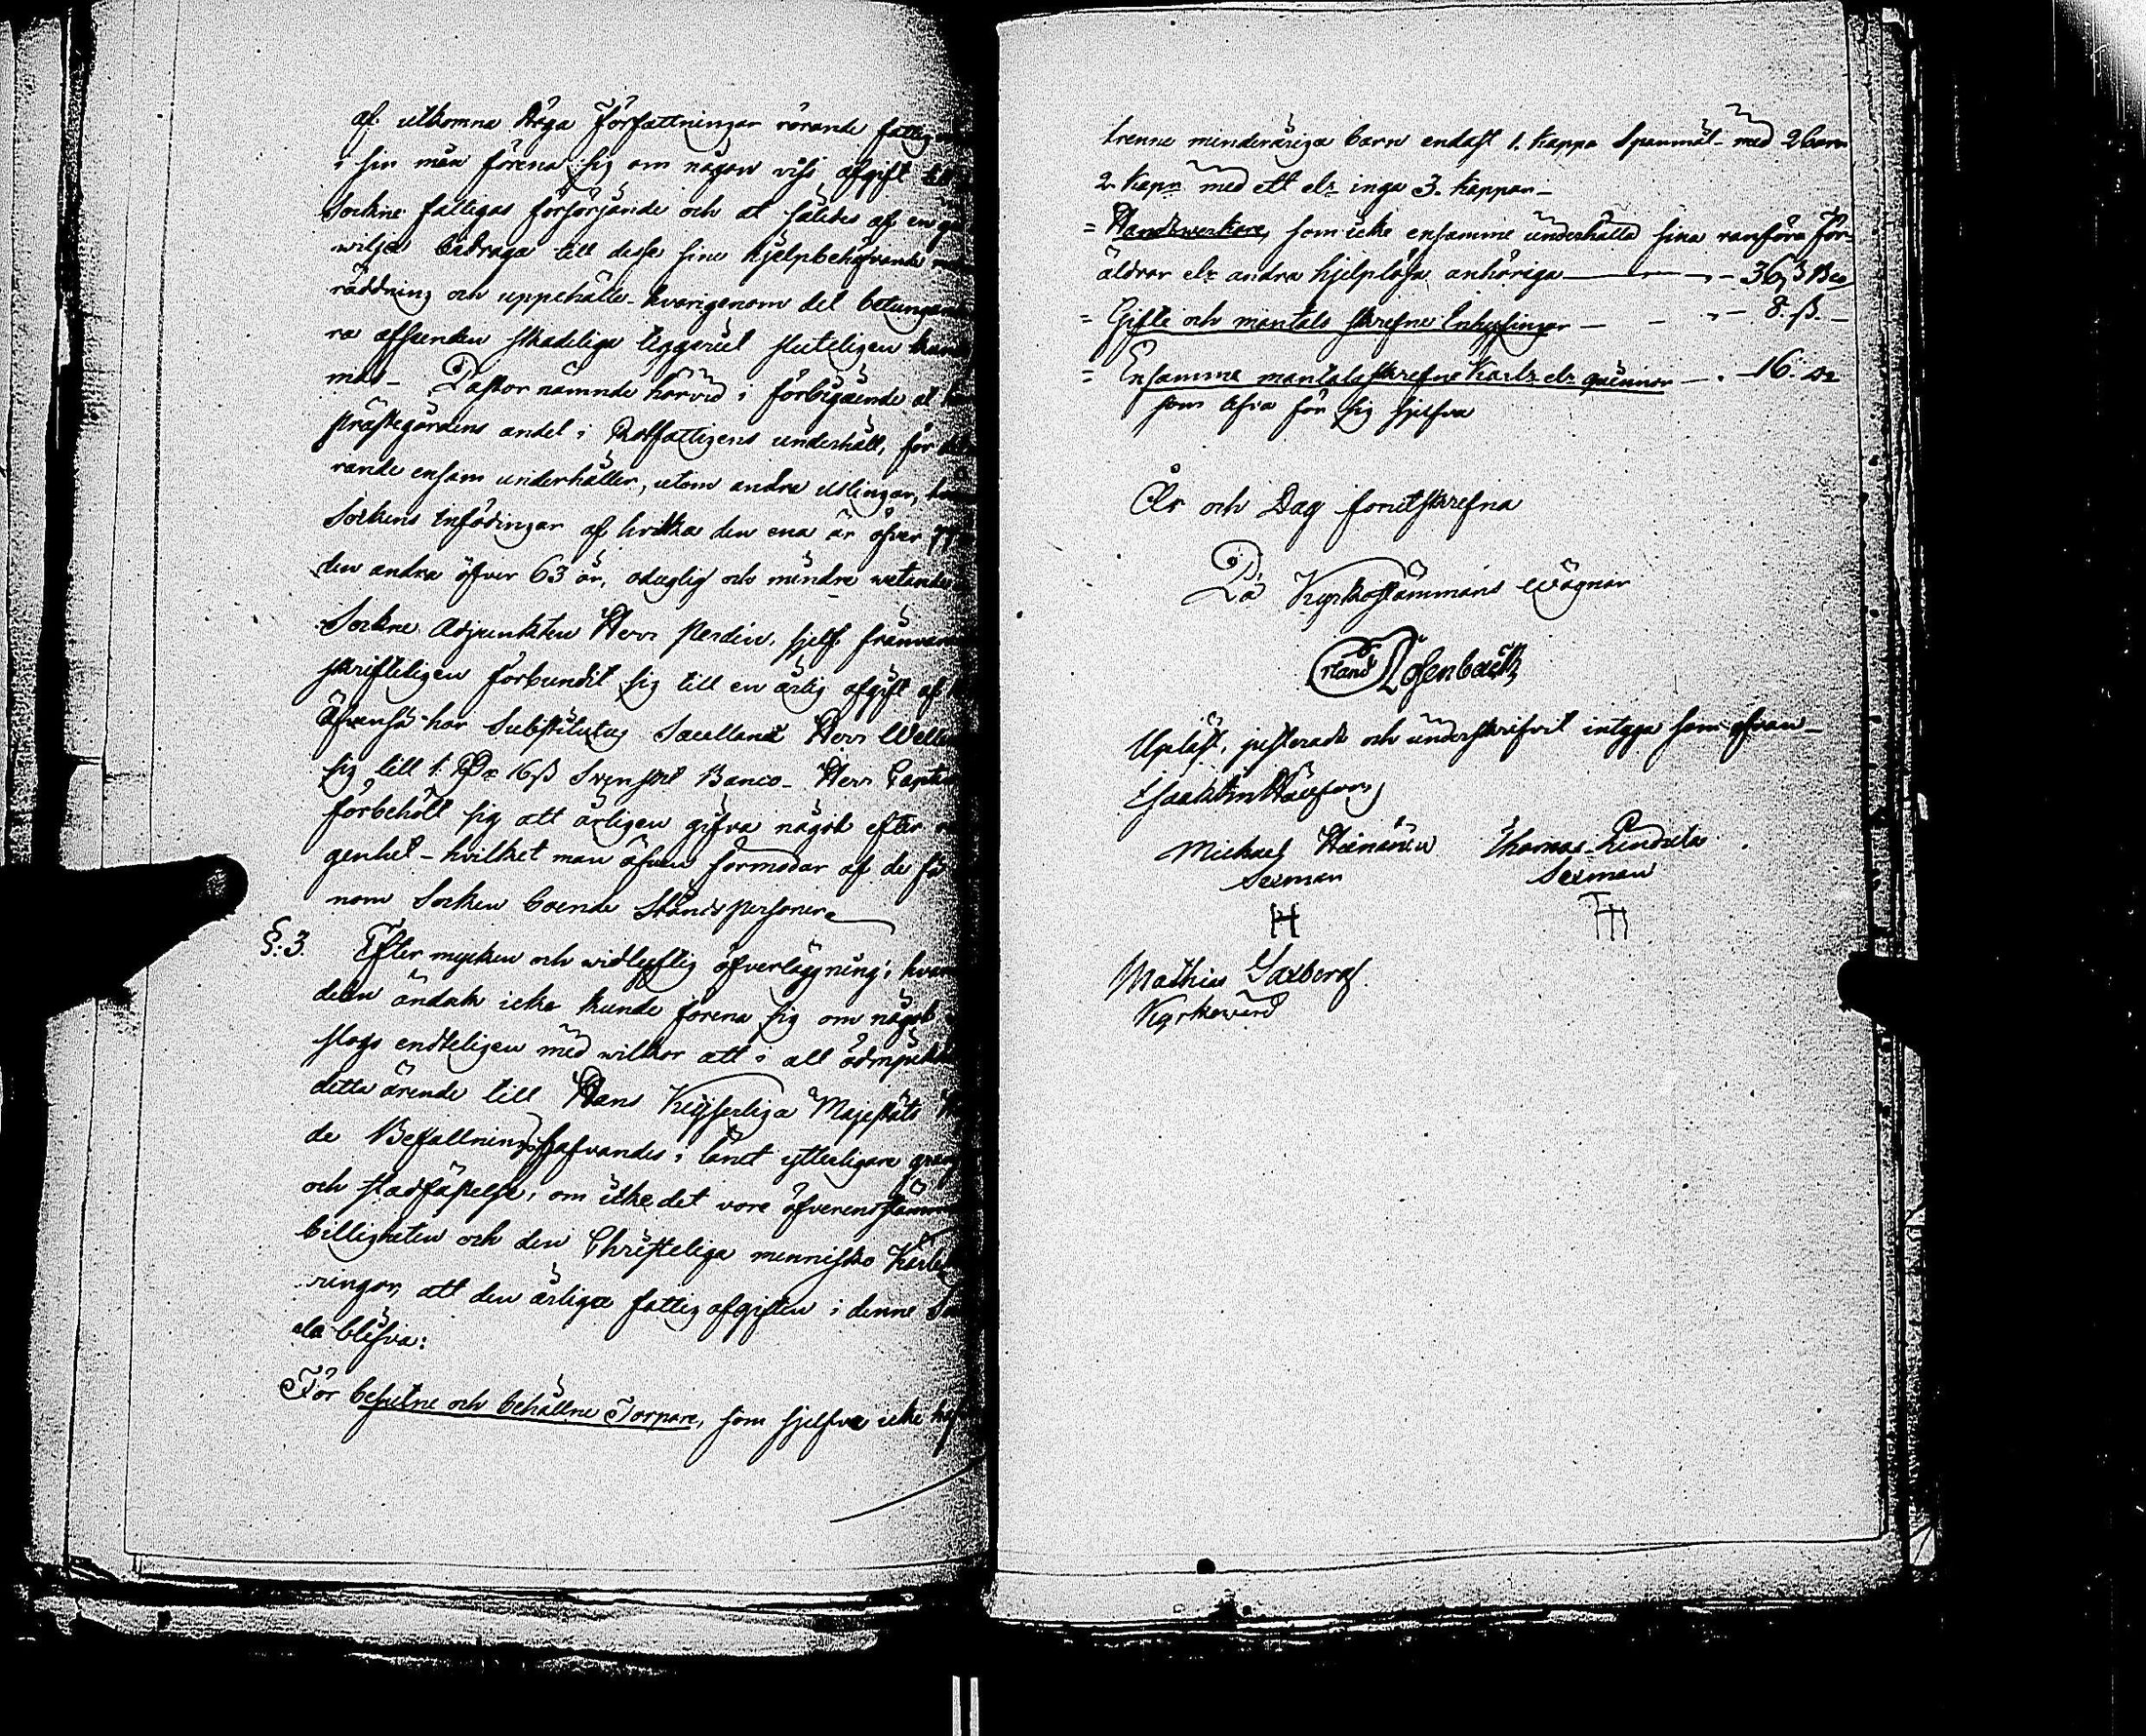 af utkomna Höga Författningar rörande fattig
i sin mån förena sig om någon viss afgift till
Sockne fattigas försörjande och at således af en
wilja bidraga till dessa sine hjelpbehöfvande
räddning och uppehälle – hvarigenom det betungan
ra afseenden skadeliga tiggeriet sluteligen
mas – Pastor nämnde härvid i förbigående at
Prästegårdens andel i Rotfattigens underhåll, för
rande ensam underhåller, utom andra uslingar,
Sockens infödingar af hvilka den ena är öfver 77
den andra öfver 63 år, oduglig och mindre wetande
Sockne Adjunkten Herr Perdén, sjelf frånvar
skrifteligen förbundit sig till en årlig afgift af
Äfvenså har Substitutus Sacellanus Herr
sig till 1. Rd 16 ß Svenskt Banco – Herr
förbehölt sig att årligen gifva något efter
genhet – hvilket man äfven förmodar af de få
nom Socken boende Ståndspersoner
§. 3. Efter mycken och widlyftig öfverläggning;
delen ändock icke kunde förena sig om något
slogs endteligen med wilkor att i all ödmjukh
detta ärende till Hans Keijserliga Majestäts
de Befallningshafvandes i länet ytterligare
och stadfästelse, om icke det vore öfverensstämm
billigheten och den Christeliga menniskokärlek
ringar, att den årliga fattigafgiften i denne
da blifva:
För besutne och behållne Torpare, som sjelfva icke
trenne minderåriga barn endast 1. kappa Spanmål – med 2 barn
2. Kapr med ett elr inga 3. kappar –
= Handtwerkare, som icke ensamme underhålla sina vanföra För-
äldrar elr andra hjelplösa anhöriga – 36 ß Bco
= Gifte och mantals skrefne Inhysingar – – – 8. ß. –
= Ensamme mantalsskrefne Karlr elr qvinnor – 16: do
som äfva för sig sjelfva
År och Dag förutskrefna
På Kyrkostämmans wägnar
Erland Rosenback
Upläst, justeradt och underskrifvit intyga som ofvan –
Michael Heinänen Thomas
Sexman Sexman
H TH
Mathias Saxberg
Kyrkowärd